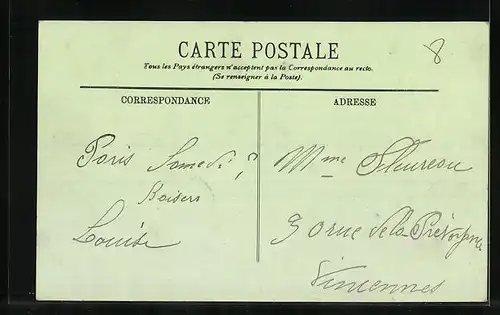 8
CARTE POSTALE
Tous les Pays étrangers n'acceptent pas la Correspondance au recto.
(Se renseigner à la Poste).
CORRESPONDANCE
ADRESSE
Paris Samedi ?
Baisers
Louise
Mme Fleureau
30 rue de la Prévoyance
Vincennes